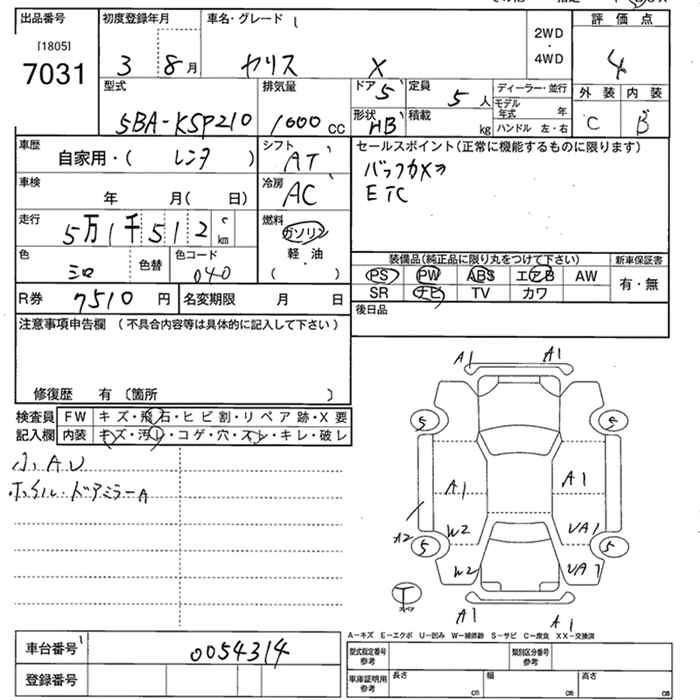 出品番号
[1805]
7031
初度登録年月
3年 8月
車名・グレード
ヤリス X
2WD
・
4WD
評価点
4
外装 内装
C B
型式
5BA-KSP210
排気量
1000 cc
ドア 5
定員 5人
形状 HB
積載 kg
ディーラー・並行
モデル年式 年
ハンドル 左・右
車歴
自家用・( レンタ )
シフト
AT
セールスポイント(正常に機能するものに限ります)
バックカメラ
ETC
車検
年 月( 日)
冷房
AC
走行
5万1千512 km
燃料
ガソリン
軽・油
( )
色
シロ
色替
色コード
040
装備品(純正品に限り丸をつけて下さい)
新車保証書
PS PW ABS エアB AW
有・無
SR ナビ TV カワ
R券 7510円
名変期限 月 日
後日品
注意事項申告欄 (不具合内容等は具体的に記入して下さい)
修復歴 有 〔箇所 〕
検査員 FW キズ・飛石・ヒビ割・リペア跡・X要
記入欄 内装 キズ・汚レ・コゲ・穴・スレ・キレ・破レ
小AU
ホイル・ドアミラーA
A1 A1
5 5
A1 A1
A2
W2 UA1
5 5
W2 UA1
T
スペア
A1 A1
A-キズ E-エクボ U-凹み W-補修跡 S-サビ C-腐食 XX-交換済
車台番号 0054314
登録番号
型式指定番号
参考
類別区分番号
参考
車庫証明用
参考
長さ cm 幅 cm 高さ cm